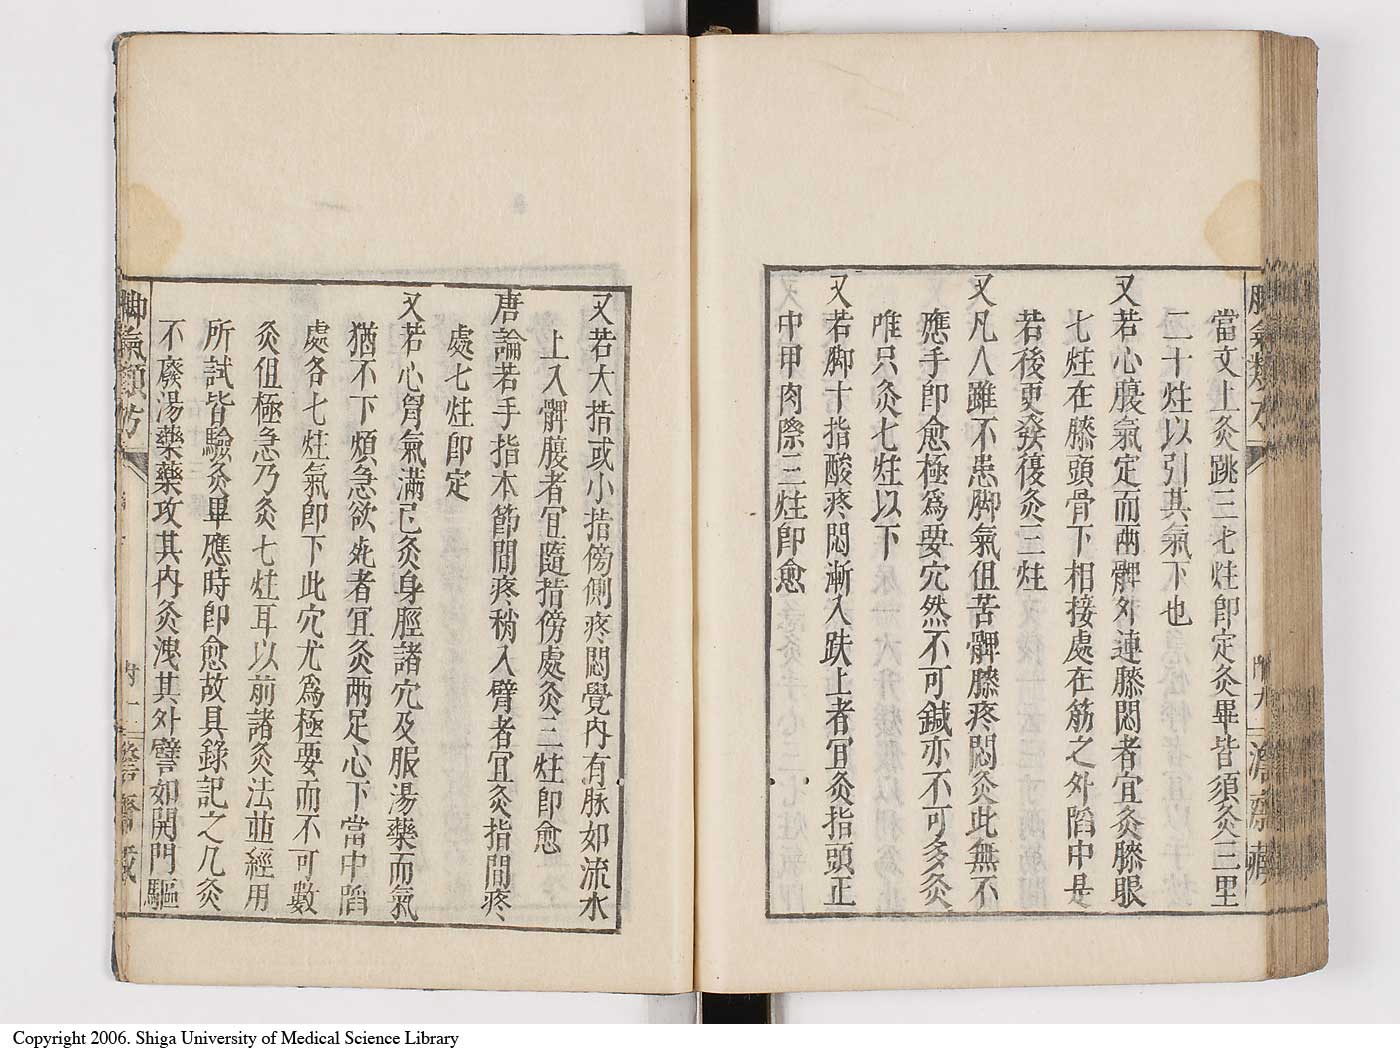 當文上灸跳三七炷卽定灸畢皆須灸三里
二十炷以引其氣下也
又若心腹氣定而兩髀外連膝悶者宜灸膝眼
七炷在膝頭骨下相接處在筋之外陷中是
若後更發復灸三炷
又凡人雖不患脚氣但苦髀膝疼悶灸此無不
應手卽愈極爲要穴然不可鍼亦不可多灸
唯只灸七炷以下
又若脚十指酸疼悶漸入趺上者宜灸指頭正
中甲肉際三炷卽愈
又若大指或小指傍側疼悶覺內有脉如流水
上入髀腹者宜隨指傍處灸三炷卽愈
唐論若手指本節間疼稍入臂者宜灸指間疼
處七炷卽定
又若心胷氣滿已灸身脛諸穴及服湯藥而氣
猶不下煩急欲死者宜灸兩足心下當中陷
處各七炷氣卽下此穴尤爲極要而不可數
灸但極急乃灸七炷耳以前諸灸法並經用
所試皆驗灸畢應時卽愈故具錄記之凡灸
不廢湯藥藥攻其內灸洩其外譬如開門驅
脚氣類方
Copyright 2006. Shiga University of Medical Science Library